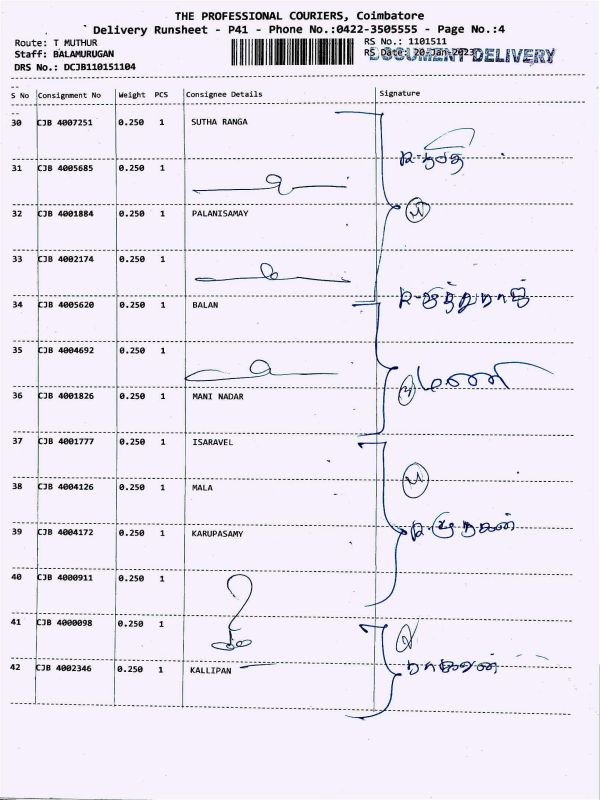 THE PROFESSIONAL COURIERS, Coimbatore
Delivery Runsheet - P41 - Phone No.:0422-3505555 - Page No.:4
Route: T MUTHUR
RS No.: 1101511
Staff: BALAMURUGAN
RS Date: 20-Jan-2023
DOCUMENT DELIVERY
DRS No.: DCJB110151104
S No Consignment No Weight PCS Consignee Details Signature
30 CJB 4007251 0.250 1 SUTHA RANGA
31 CJB 4005685 0.250 1
32 CJB 4001884 0.250 1 PALANISAMAY
33 CJB 4002174 0.250 1
34 CJB 4005620 0.250 1 BALAN
35 CJB 4004692 0.250 1
36 CJB 4001826 0.250 1 MANI NADAR
37 CJB 4001777 0.250 1 ISARAVEL
38 CJB 4004126 0.250 1 MALA
39 CJB 4004172 0.250 1 KARUPASAMY
40 CJB 4000911 0.250 1
41 CJB 4000098 0.250 1
42 CJB 4002346 0.250 1 KALLIPAN